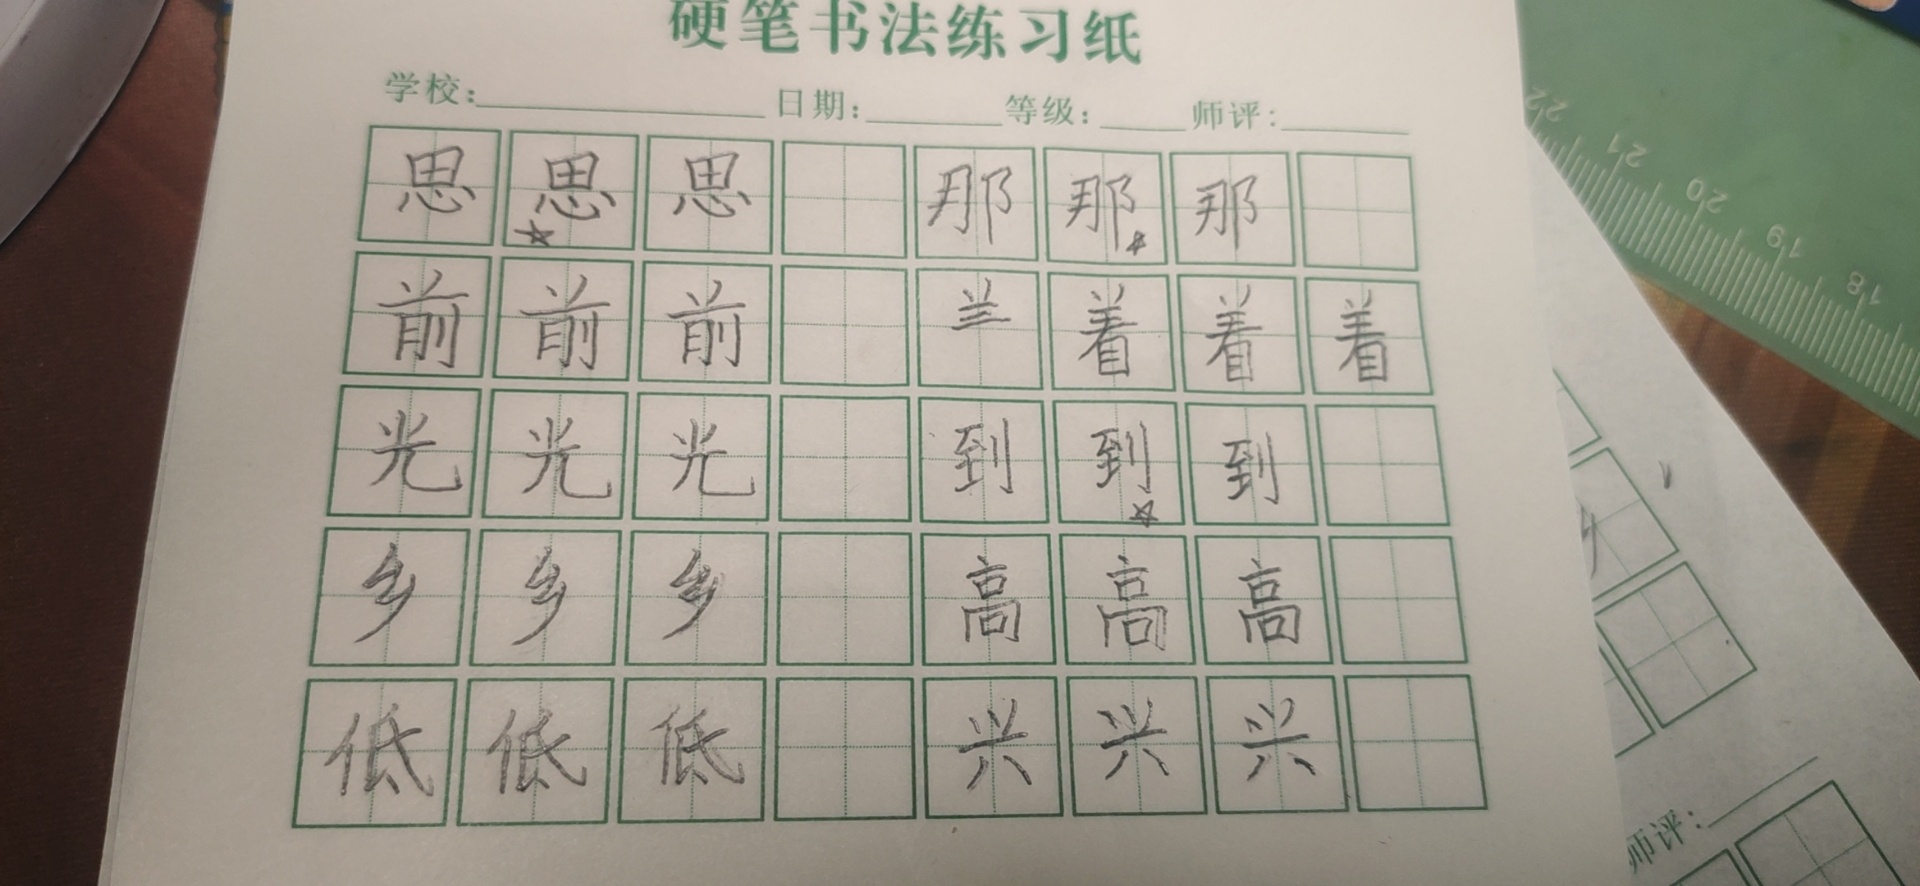 硬笔书法练习纸
学校: 日期: 等级: 师评:
思 思 思 那 那 那
前 前 前 兰 着 着 着
光 光 光 到 到 到
乡 乡 乡 高 高 高
低 低 低 兴 兴 兴
22 21 20 19 18
师评: